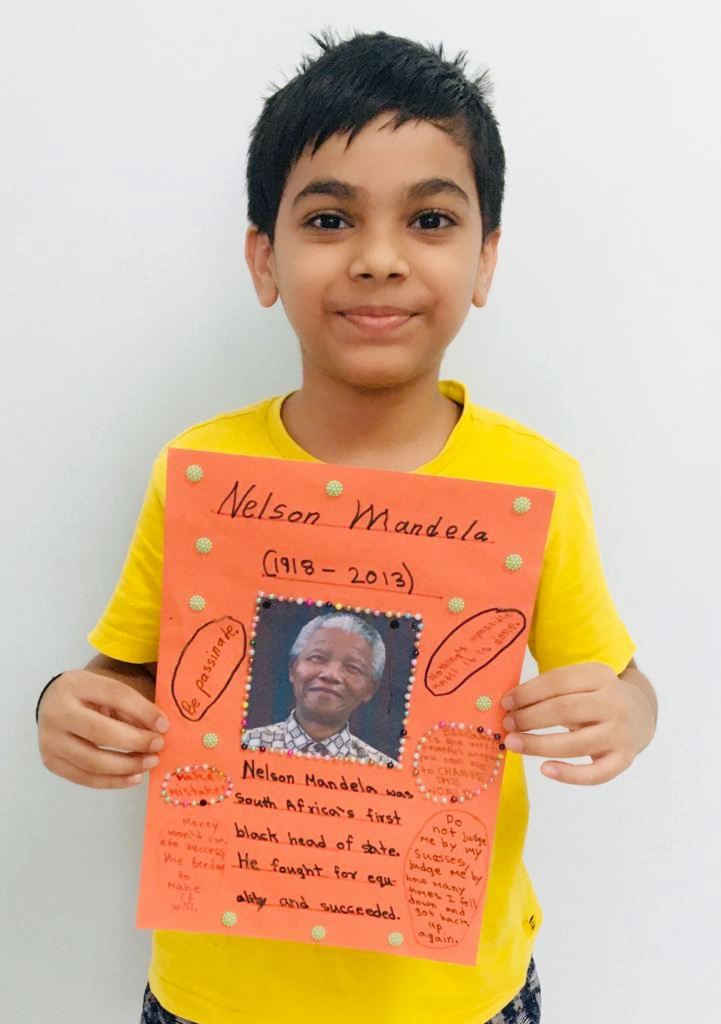 Nelson Mandela
(1918 – 2013)
Be passinate.
until it is done.
is the most
you can
to CHANGE
THE
WORLD
Make
Mistakes
Money
won't cre
ate success
the
to
make
it
will.
Nelson Mandela was
South Africa's first
black head of sate.
He fought for equ-
ality and succeeded.
Do
not judge
me by my
sucsses,
judge me by
how many
times I fell
down and
got back
up
again.